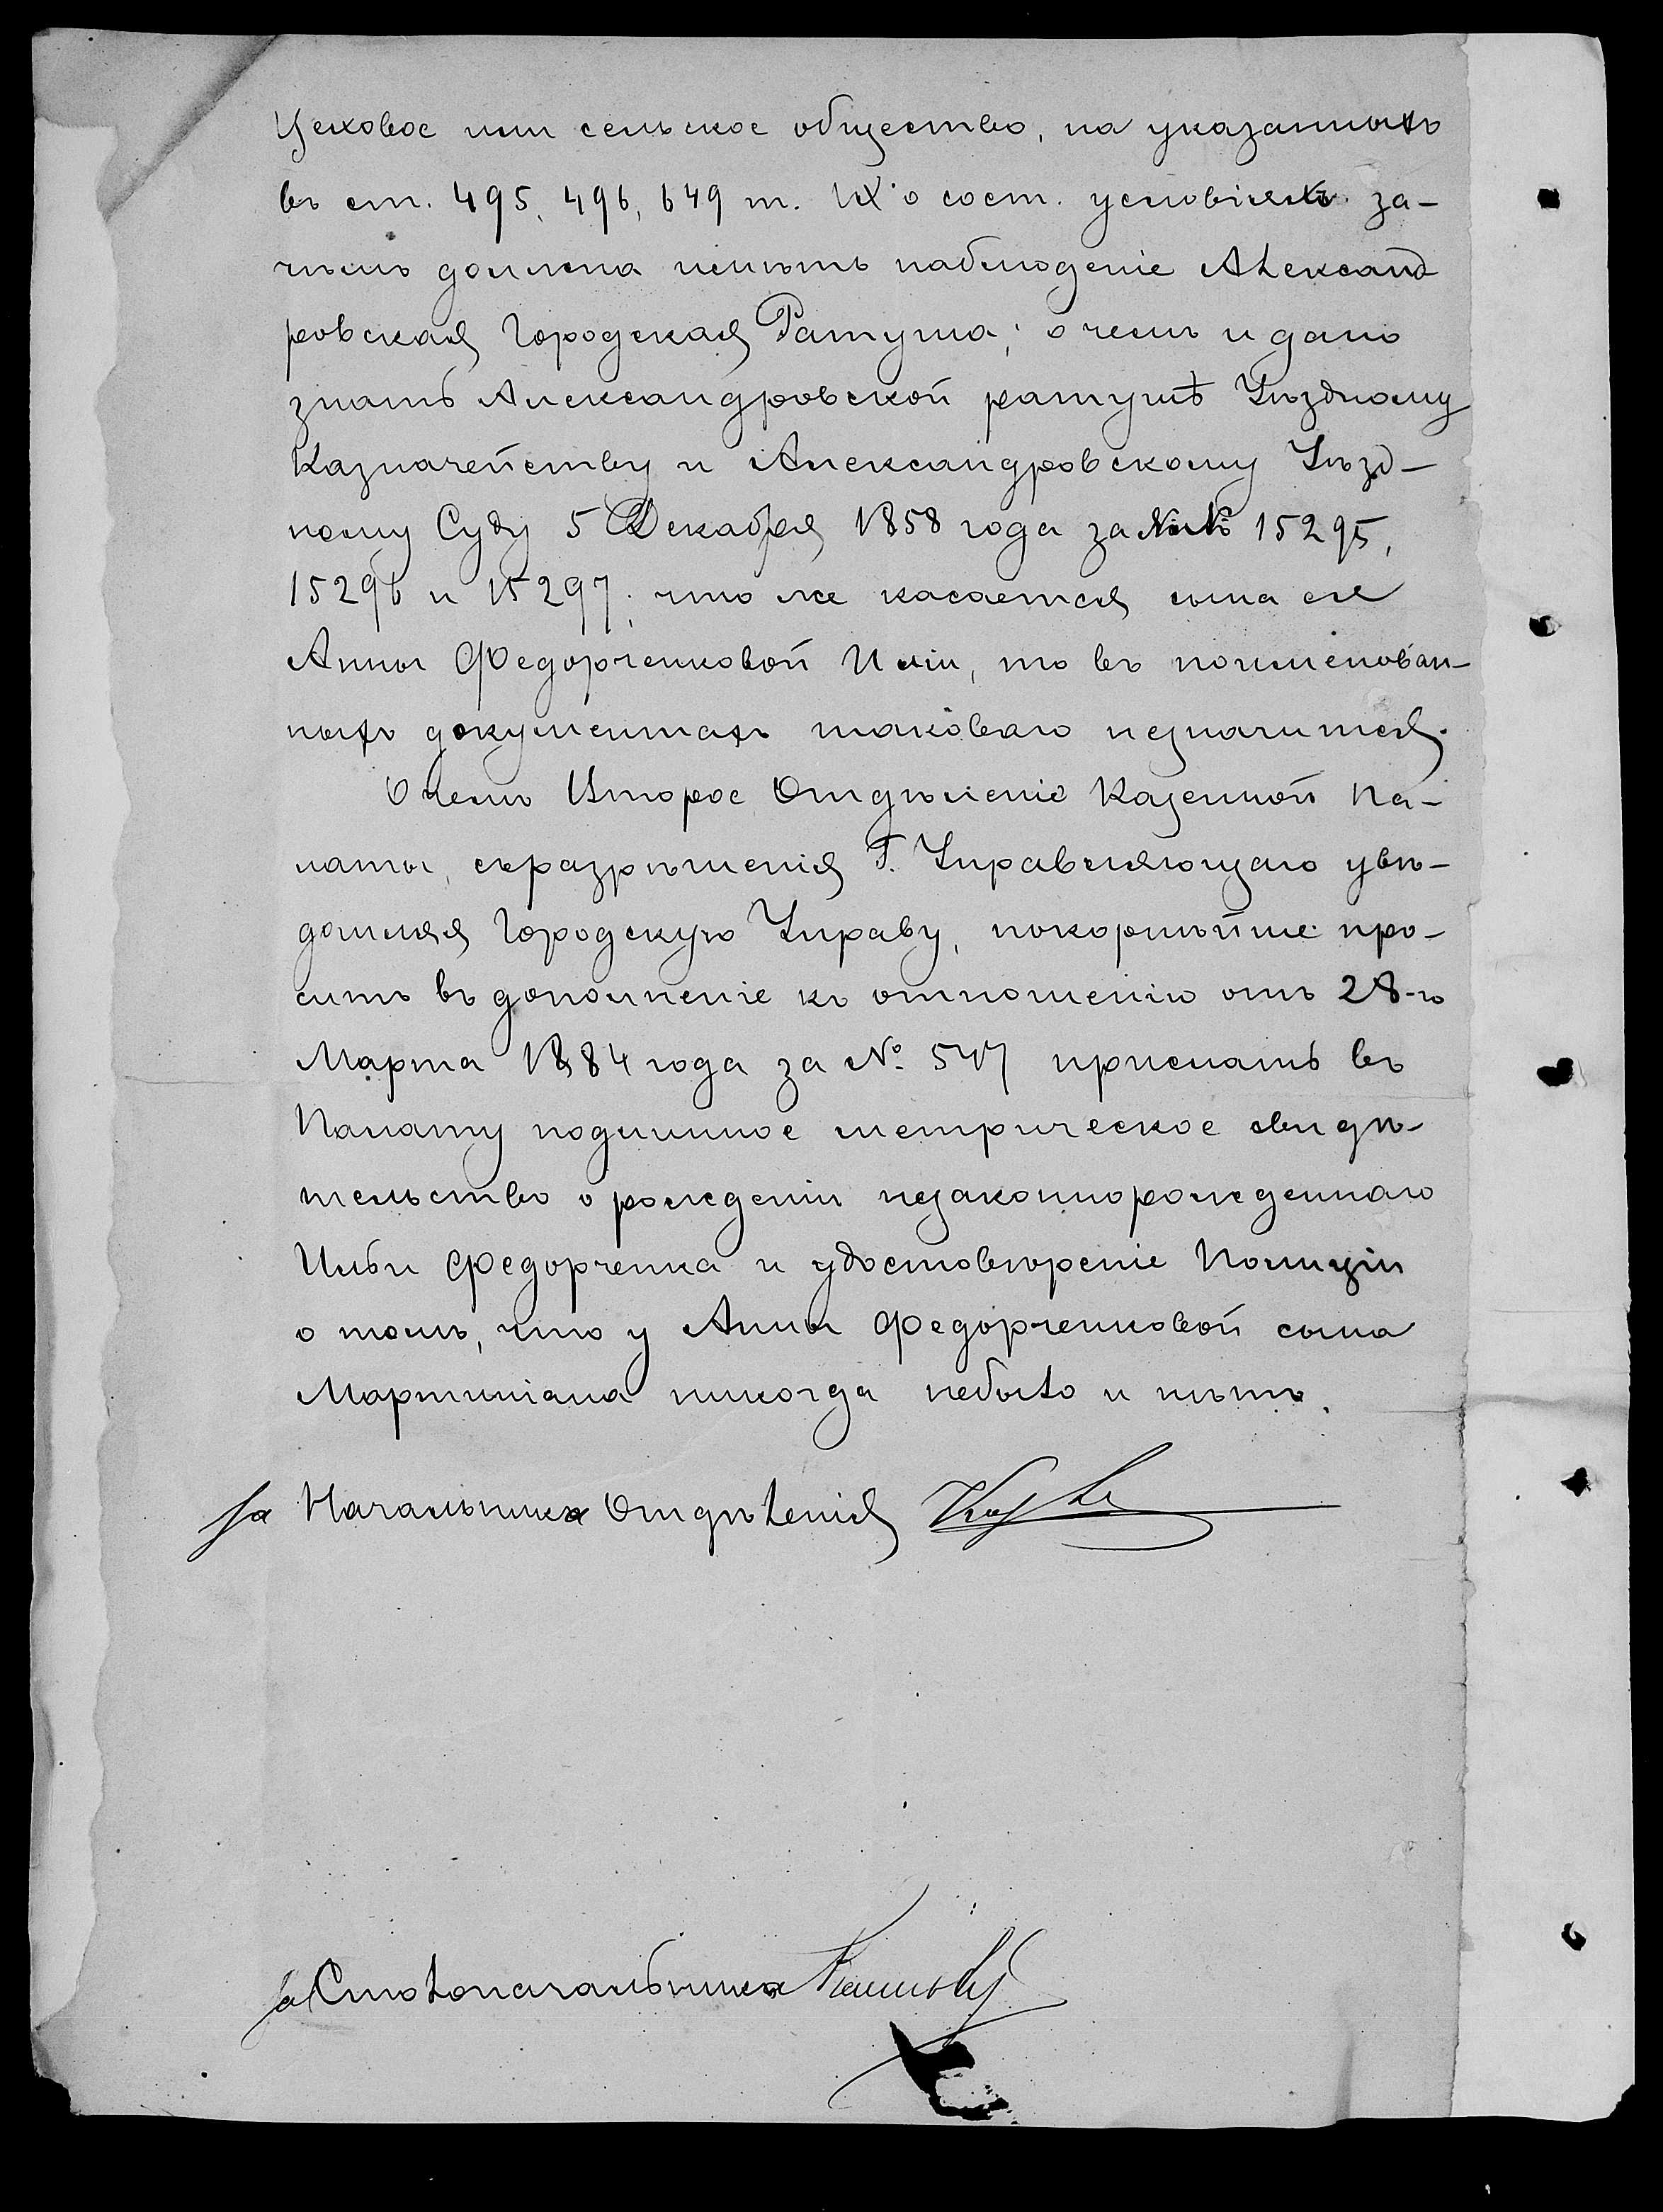 Цеховое или сельское общество, на указанныхъ
въ ст. 495, 496, 649 т. IX о сост. условіяхъ за-
чѣмъ должна имѣть наблюденіе Александ
ровская Городская Ратуша; о чемъ и дано
знать Александровской ратушѣ Уѣздному
Казначейству и Александровскому Уѣзд-
ному Суду 5 Декабря 1858 года за №№ 15295,
15296 и 15297; что же касается сына ея
Анны Федорченковой Иліи, то въ поименован-
ныхъ документахъ таковаго незначится.
О чемъ Второе Отдѣленіе Казенной Па-
латы, съ разрѣшенія Г. Управляющаго увѣ-
домляя Городскую Управу, покорнѣйше про-
ситъ въ дополненіе къ отношенію отъ 28-го
Марта 1884 года за №. 547 прислать въ
Палату подлинное метрическое свидѣ-
тельство о рожденіи незаконнорожденнаго
Ильи Федорченка и удостовѣреніе Полиціи
о томъ, что у Анны Федорченковой сына
Мартиніана никогда небыло и нѣтъ.
За Начальника Отдѣленія
За Столоначальника